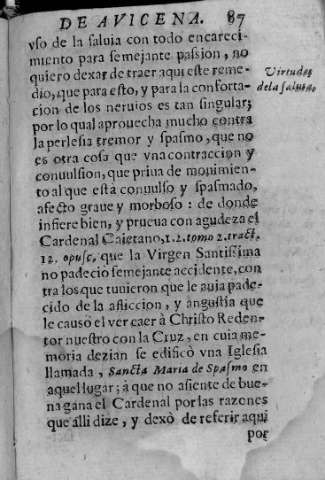 DE AVICENA. 87
vso de la saluia con todo encareci-
miento para semejante passion, no
quiero dexar de traer aqui este reme-
dio, que para esto, y para la conforta-
cion de los neruios es tan singular;
por lo qual aprouecha mucho contra
la perlesia tremor y spasmo, que no
es otra cosa que vna contraccion y
conuulsion, que priua de mouimien-
to al que està conuulso y spasmado,
afecto graue y morboso: de donde
infiere bien, y prueua con agudeza el
Cardenal Caietano, 1. 2. tomo 2. tract.
12. opusc. que la Virgen Santissima
no padecio semejante accidente, con
tra los que tuuieron que le auia pade-
cido de la afliccion, y angustia que
le causò el ver caer à Christo Reden-
tor nuestro con la Cruz, en cuia me-
moria dezian se edificò vna Iglesia
llamada, Sancta Maria de Spasmo en
aquel lugar; à que no asiente de bue-
na gana el Cardenal por las razones
que alli dize, y dexò de referir aqui
por
Virtudes
de la saluia.